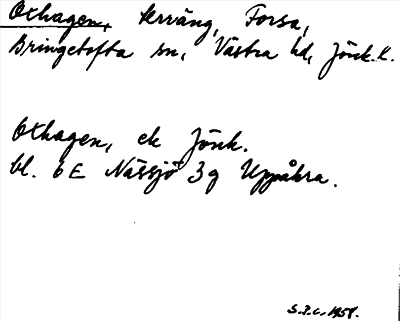 Oxhagen, terräng, Forsa,
Bringetofta sn, Västra hd, Jönk. l.
Oxhagen, ek Jönk.
bl. 6 E Nässjö 3 g Uppåkra.
1951.